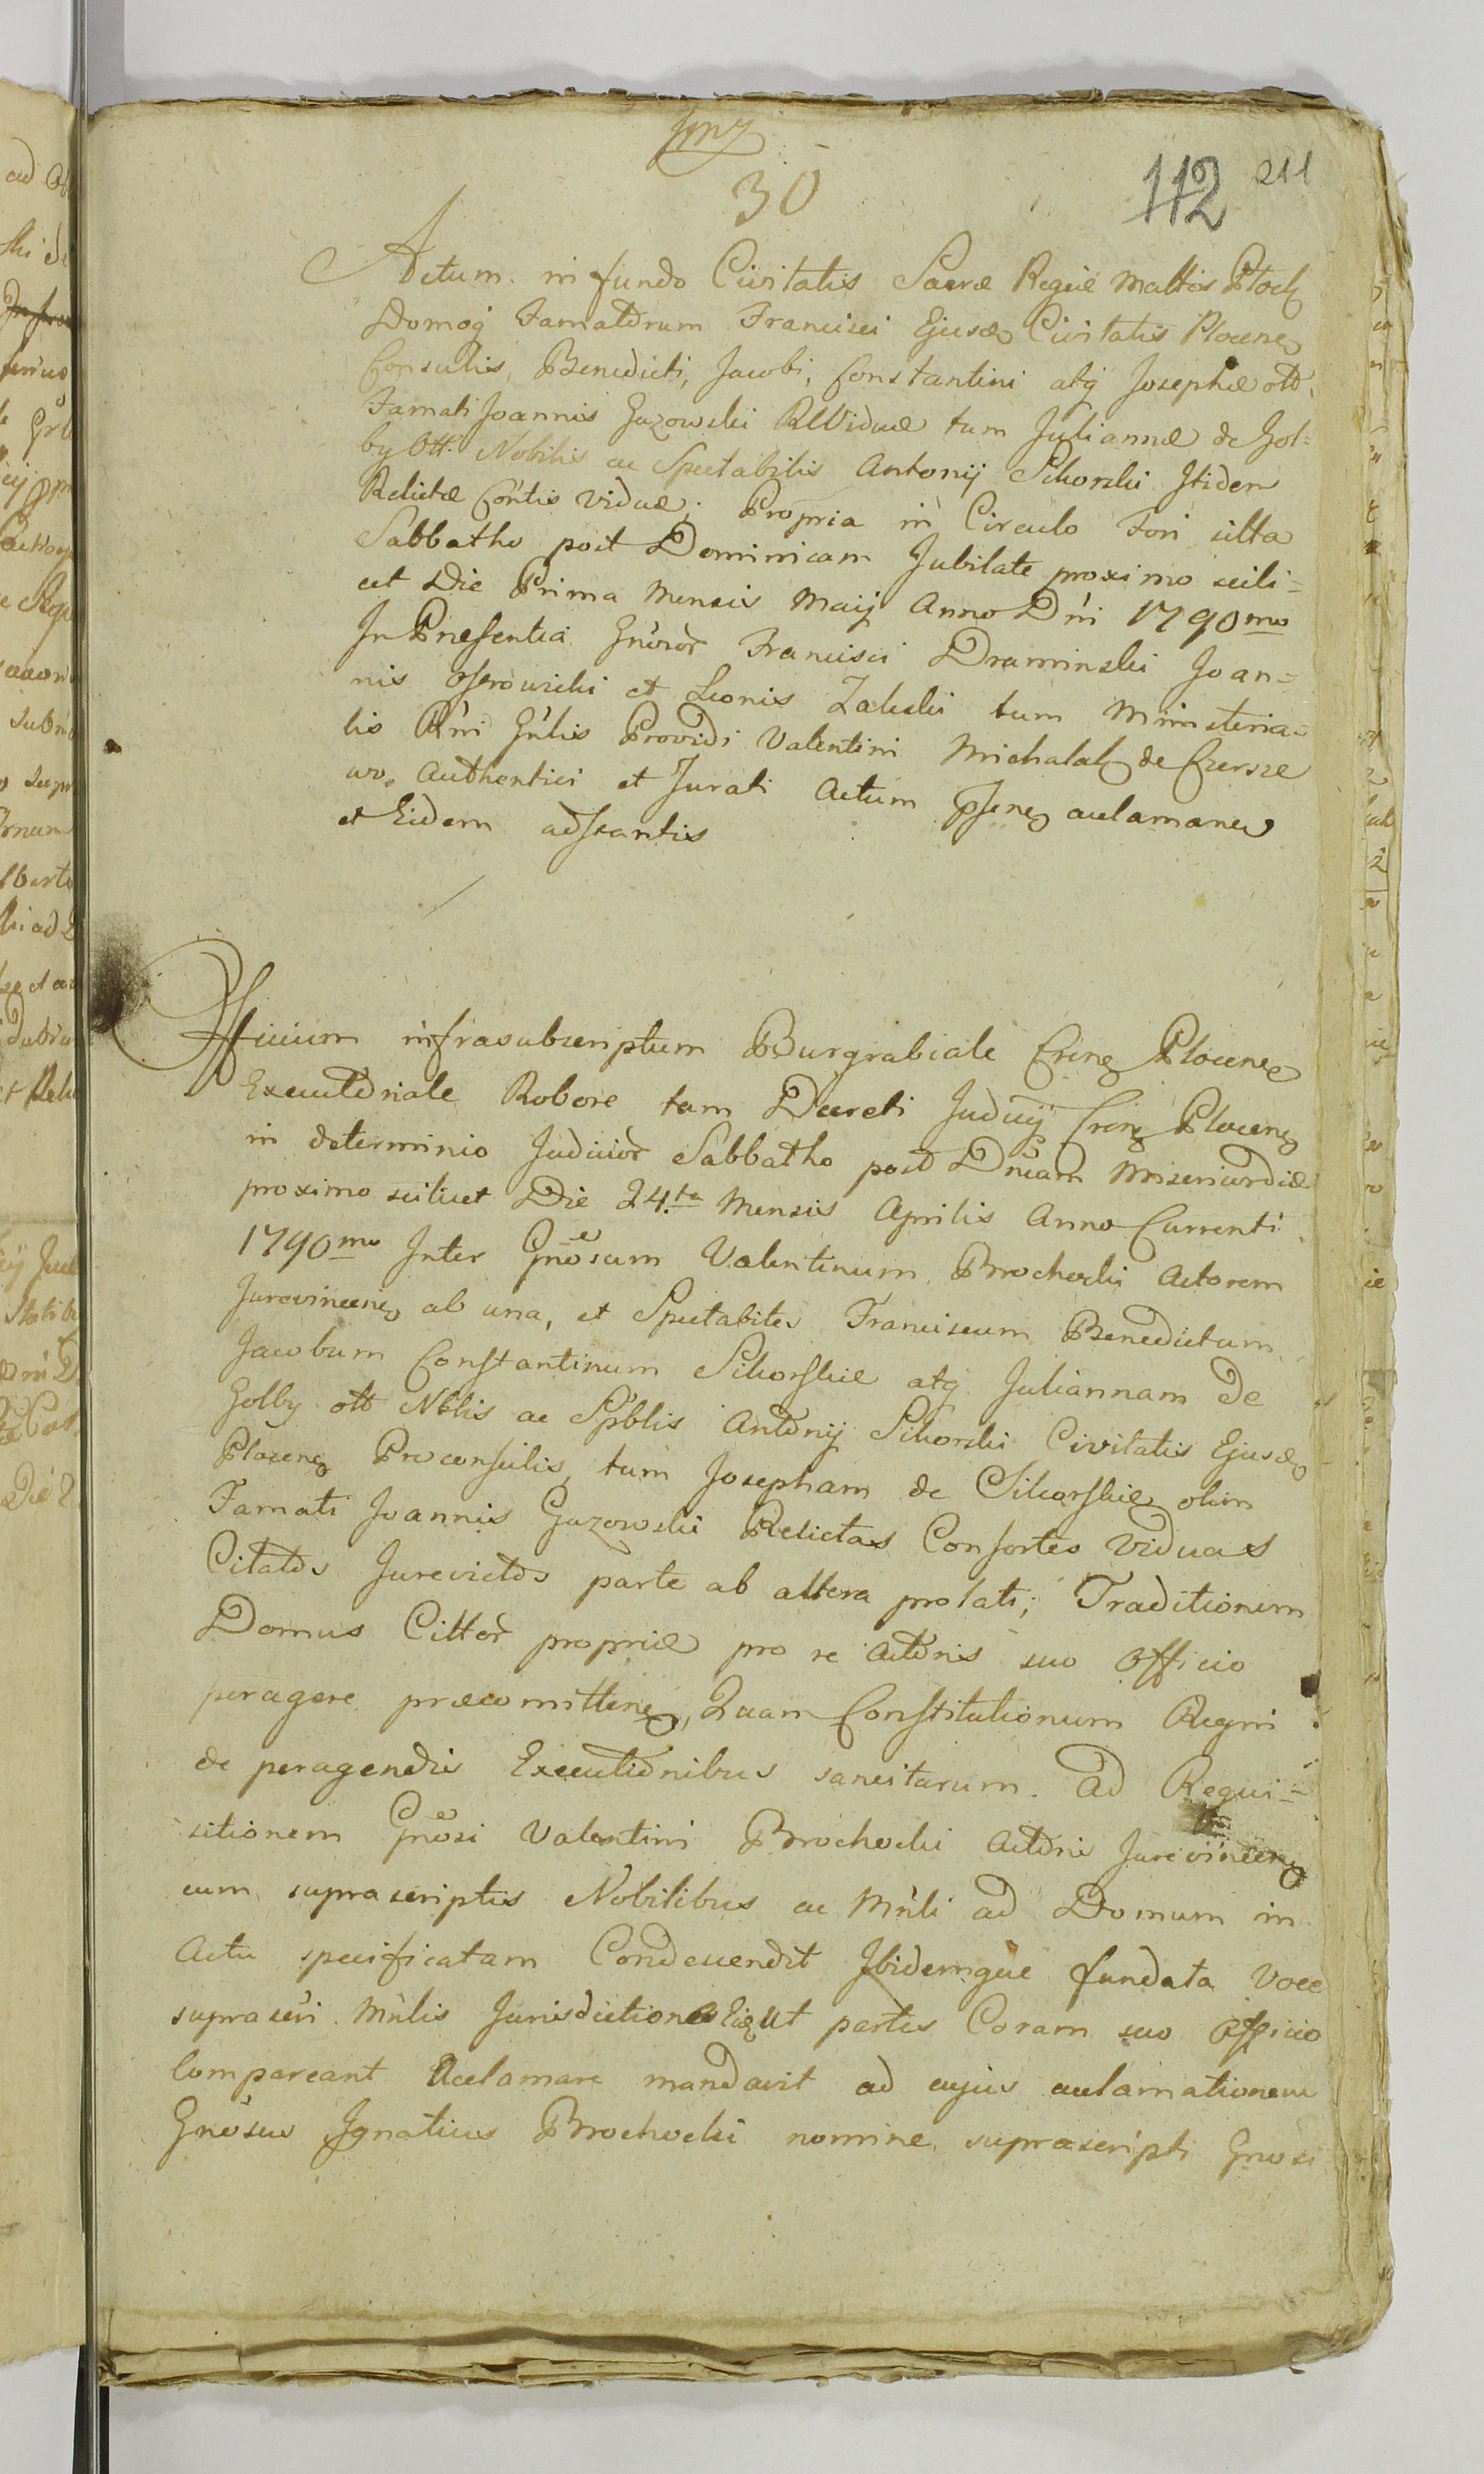 30
112 211
Actum in fundo Civitatis Sacræ Regiæ Mattis Płock
Domoq Famatorum Francisci Ejusdq Civitatis Plocenq
Consulis, Benedicti, Jacobi, Constantini atq Josephæ olt
Famati Joannis Guzowski RVViduæ tum Juliannæ de Gol=
by Olt. Nobilis ac Spectabilis Antonij Sikorski Itidem
Relictæ Contis Viduæ; Propria in Circulo Fori sitta
Sabbatho post Dominicam Jubilate proximo scili=
cet Die Prima Mensis Maij Anno Dni 1790mo
In Præsentia Gnosor Francisci Draminski Joan=
nis Oserowicki et Leonis Zaleski tum Ministeria=
lis Rni Gnlis Providi Valentini Michalak de
wo Authentici et Jurati Actum pnsenq aclamanq
et Eidem adstantis
Officium infrasubscriptum Burgrabiale Crenq Plocenq
Executoriale Robore tam Decreti Judicij Crenq Plocenq
in determinio Judicior Sabbatho post Dnicam Misericordiæ
proximo scilicet Die 24.ta Mensis Aprilis Anno Currenti
1790mo Inter Gnosum Valentinum Brochocki Actorem
Jurevincenq ab una, et Spectabiles Franciscum Benedictum
Jacobum Constantinum Sikorskie atq Juliannam de
Golby olt Nblis ac Spblis Antonij Sikorski Civitatis Ejusdq
Plocenq Proconsulis, tum Josepham de Sikorskie olim
Famati Joannis Guzowski Relictas Consortes Viduas
Citatos Jurevictos parte ab altera prolati; Traditionem
Domus Cittor propriæ pro re Actoris suo Officio
peragere præcomittenq, Quam Constitutionum Regni
de peragendis Executionibus sancitarum. Ad Requi=
sitionem Gnosi Valentini Brochocki Actoris Jurevincenq
cum suprascriptis Nobilibus ac Mnli ad Domum in
Actu specificatam Condescendit Ibidemque fundata Voce
suprascri Mnlis Jurisdictione Ut partes Coram suo Officio
Compareant Acclamare mandavit ad cujus aclamationem
Gnosus Ignatius Brochocki nomine suprascripti Gnosi